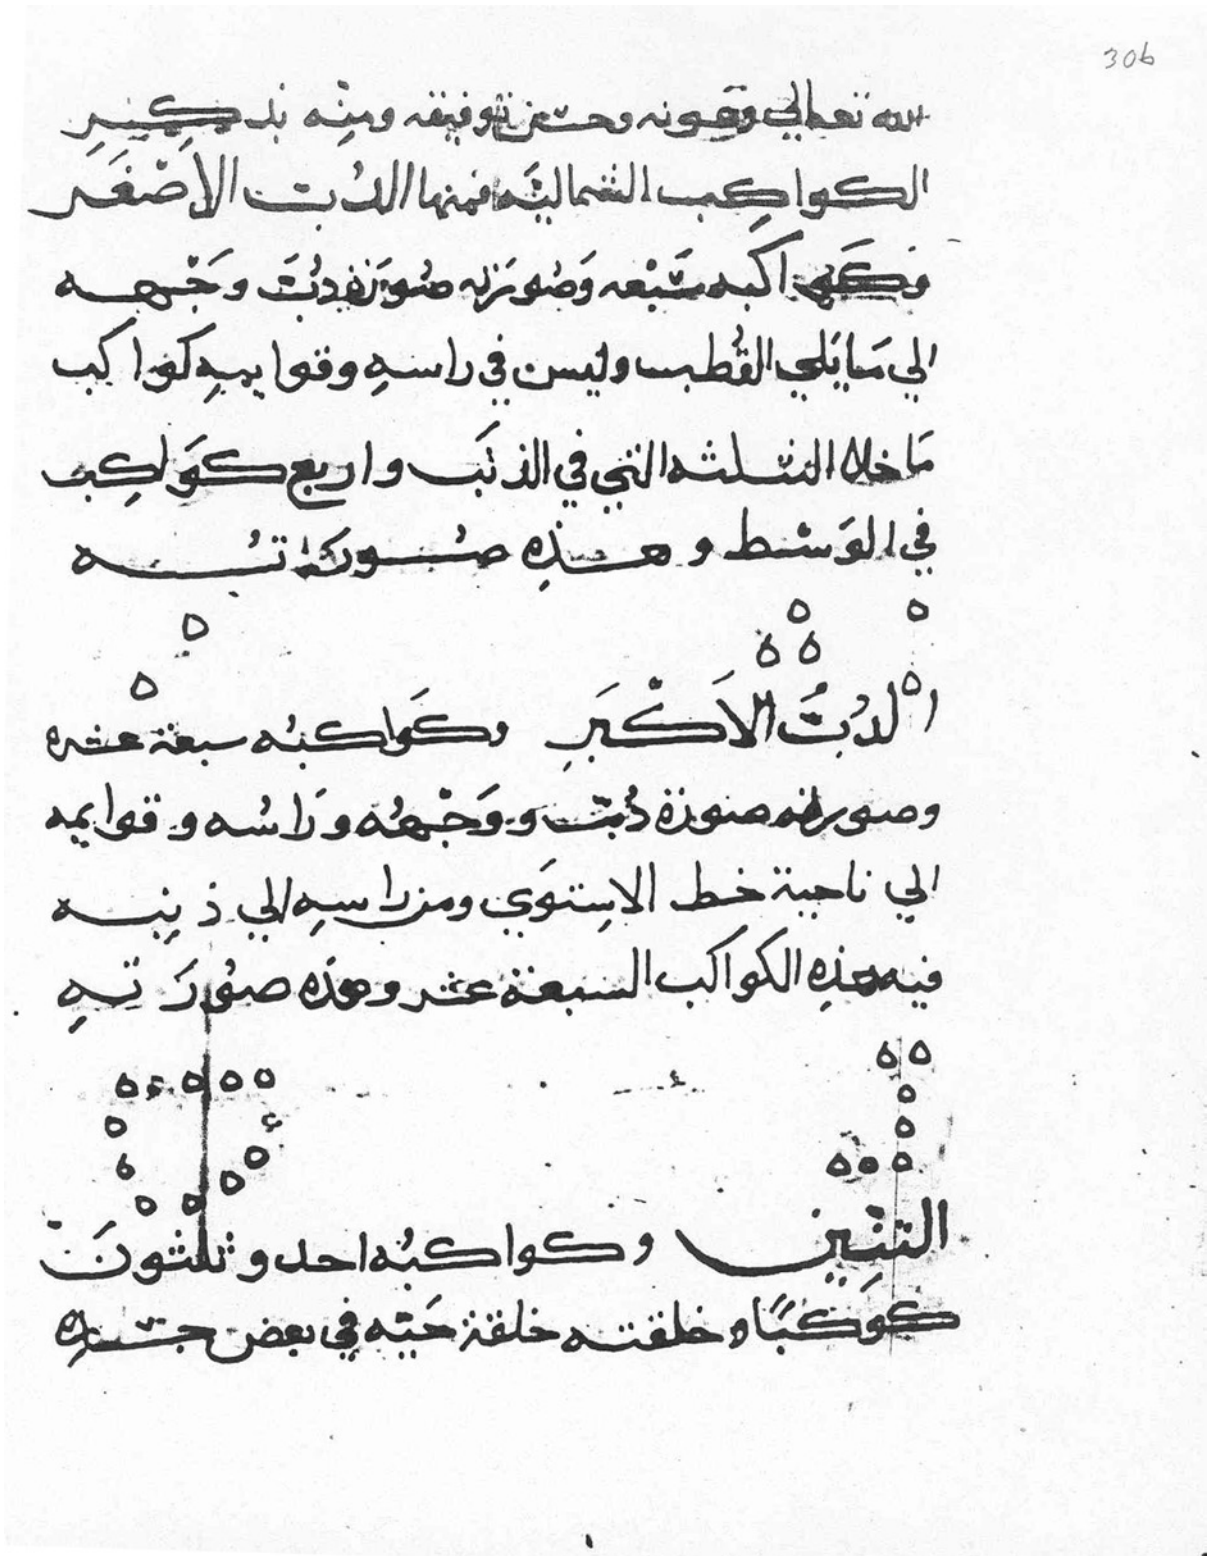 306
الله تعالي وعونه وحسن توفيقه ومنه بذكير
الكواكب الشماليه فمنها الدُبّ الاصْغَر
وكَواكبه سَبْعه وَصُورَته صُورَة دُبّ وَجْهه
الي مَا يَلي القُطب وليس في راسهِ وقوايمهِ كواكب
مَا خلا الثلثه التي في الذنَب واربع كَوَاكِب
في الوَسْط وهذِه صُورَتُه
الدُبّ الاَكْبَر وكَواكبُه سبعة عشره
وصورته صورة دُبّ ووَجْهُه ورَاسُه وقوايمه
الي ناحية خط الاِستوَي ومن راسهِ الي ذنبِه
فيه هذِه الكواكب السبعة عشر وهذه صوُرَتهِ
التنِّين وكواكبُه احد وثلثوُنَ
كَوكَبًا وخلقته خلقة حَيّه في بعض جسَدِه